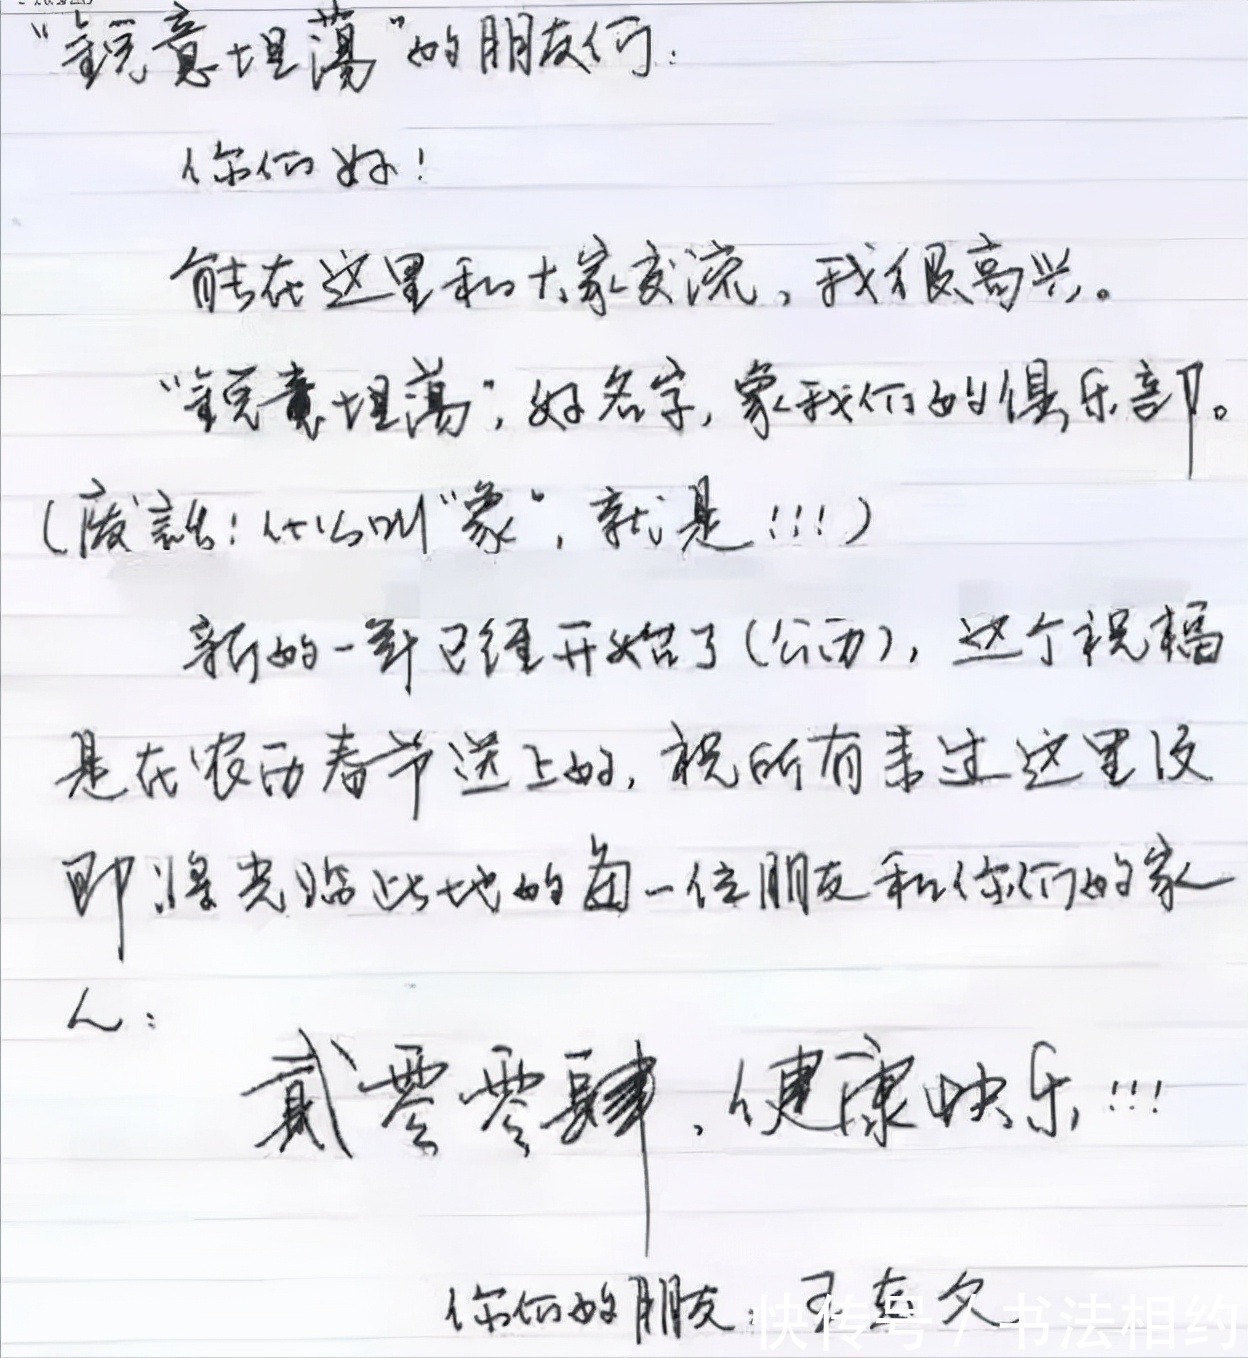 “锐意坦荡”的朋友们：
你们好！
能在这里和大家交流，我很高兴。
“锐意坦荡”，好名字，象我们的俱乐部。
（废话！什么叫“象”，就是！！！）
新的一年已经开始了（公历），这个祝福
是在农历春节送上的，祝所有来过这里没
即将光临此地的每一位朋友和你们的家
人：
貳零零肆，健康快乐！！！
你们的朋友：王
快传号 / 书法相约